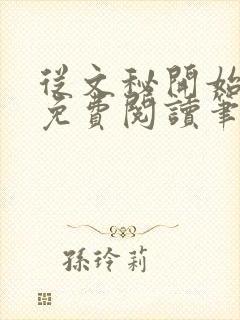 從文秘開始
免費閱讀筆
孫玲莉